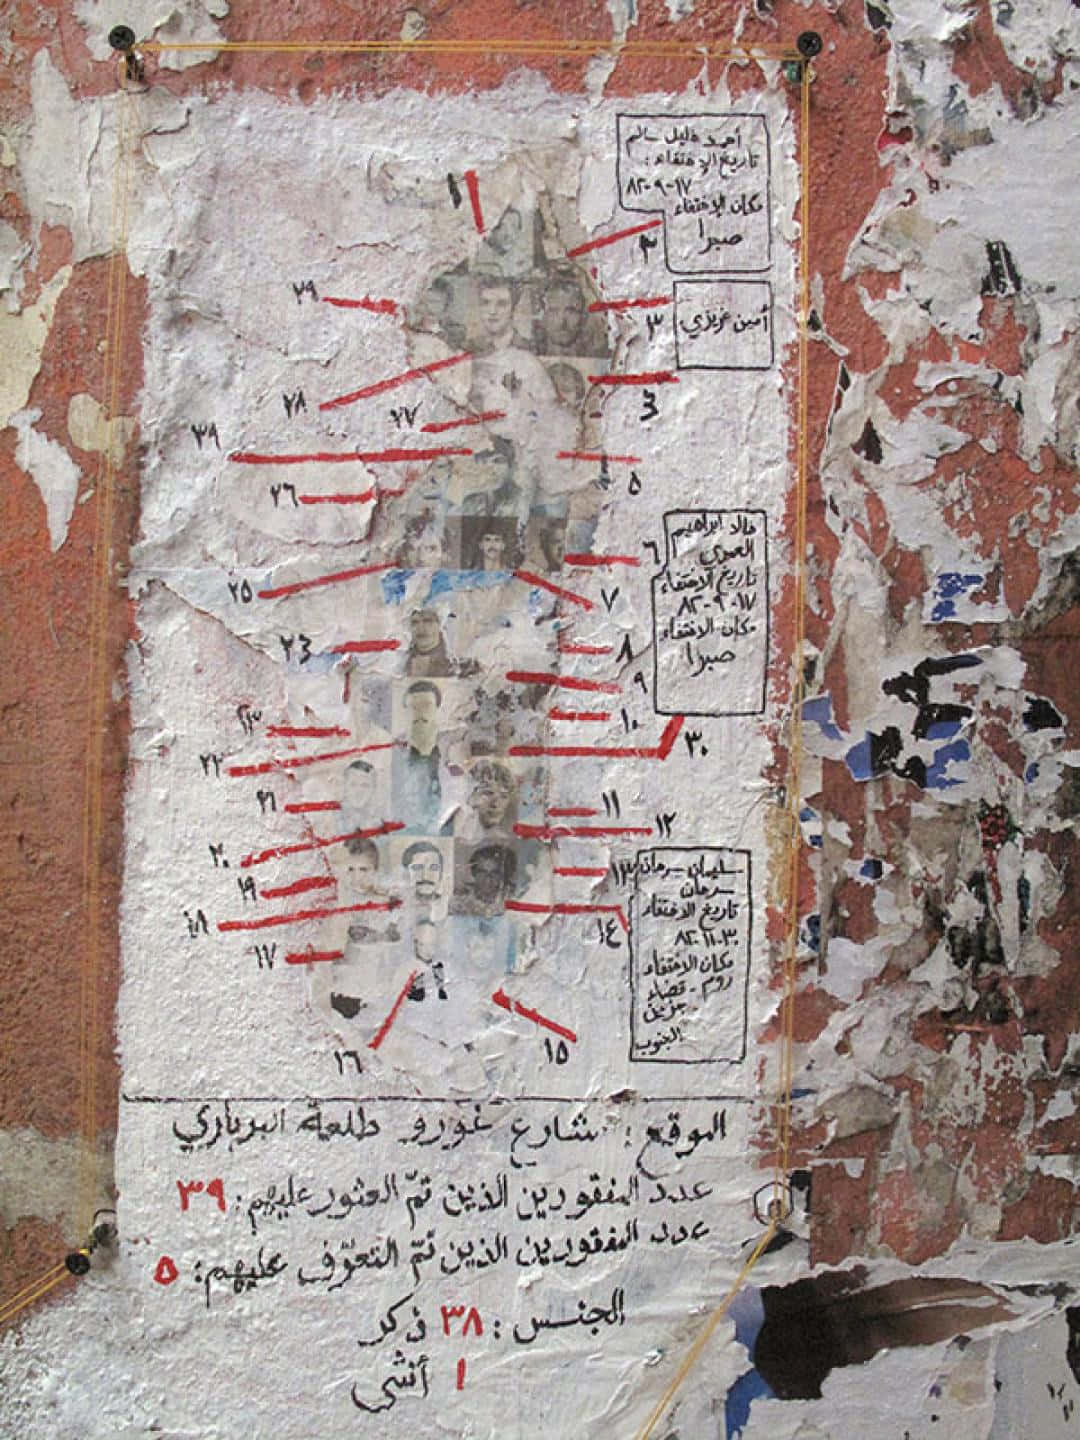 أحمد خليل سالم
تاريخ الإختفاء:
١٧-٩-٨٢
مكان الإختفاء
صبرا
١
٢
٢٩
٣
أمين عزيزي
٢٨
٢٧
٤
٣٩
٥
٢٦
خالد ابراهيم
العمري
تاريخ الاختفاء
١٧-٩-٨٢
مكان الاختفاء
صبرا
٦
٢٥
٧
٢٤
٨
٩
١٠
٢٣
٣٠
٢٢
٢١
١١
١٢
٢٠
سليمان سرمان
سرمان
تاريخ الاختفاء
٣٠-١١-٨٢
مكان الاختفاء
روم - قضاء
جزين
الجنوب
١٣
١٩
١٨
١٤
١٧
١٦
١٥
الموقع: شارع غورو طلعة البرباري
عدد المفقودين الذين تمّ العثور عليهم: ٣٩
عدد المفقودين الذين تمّ التعرّف عليهم: ٥
الجنس: ٣٨ ذكر
١ أنثى